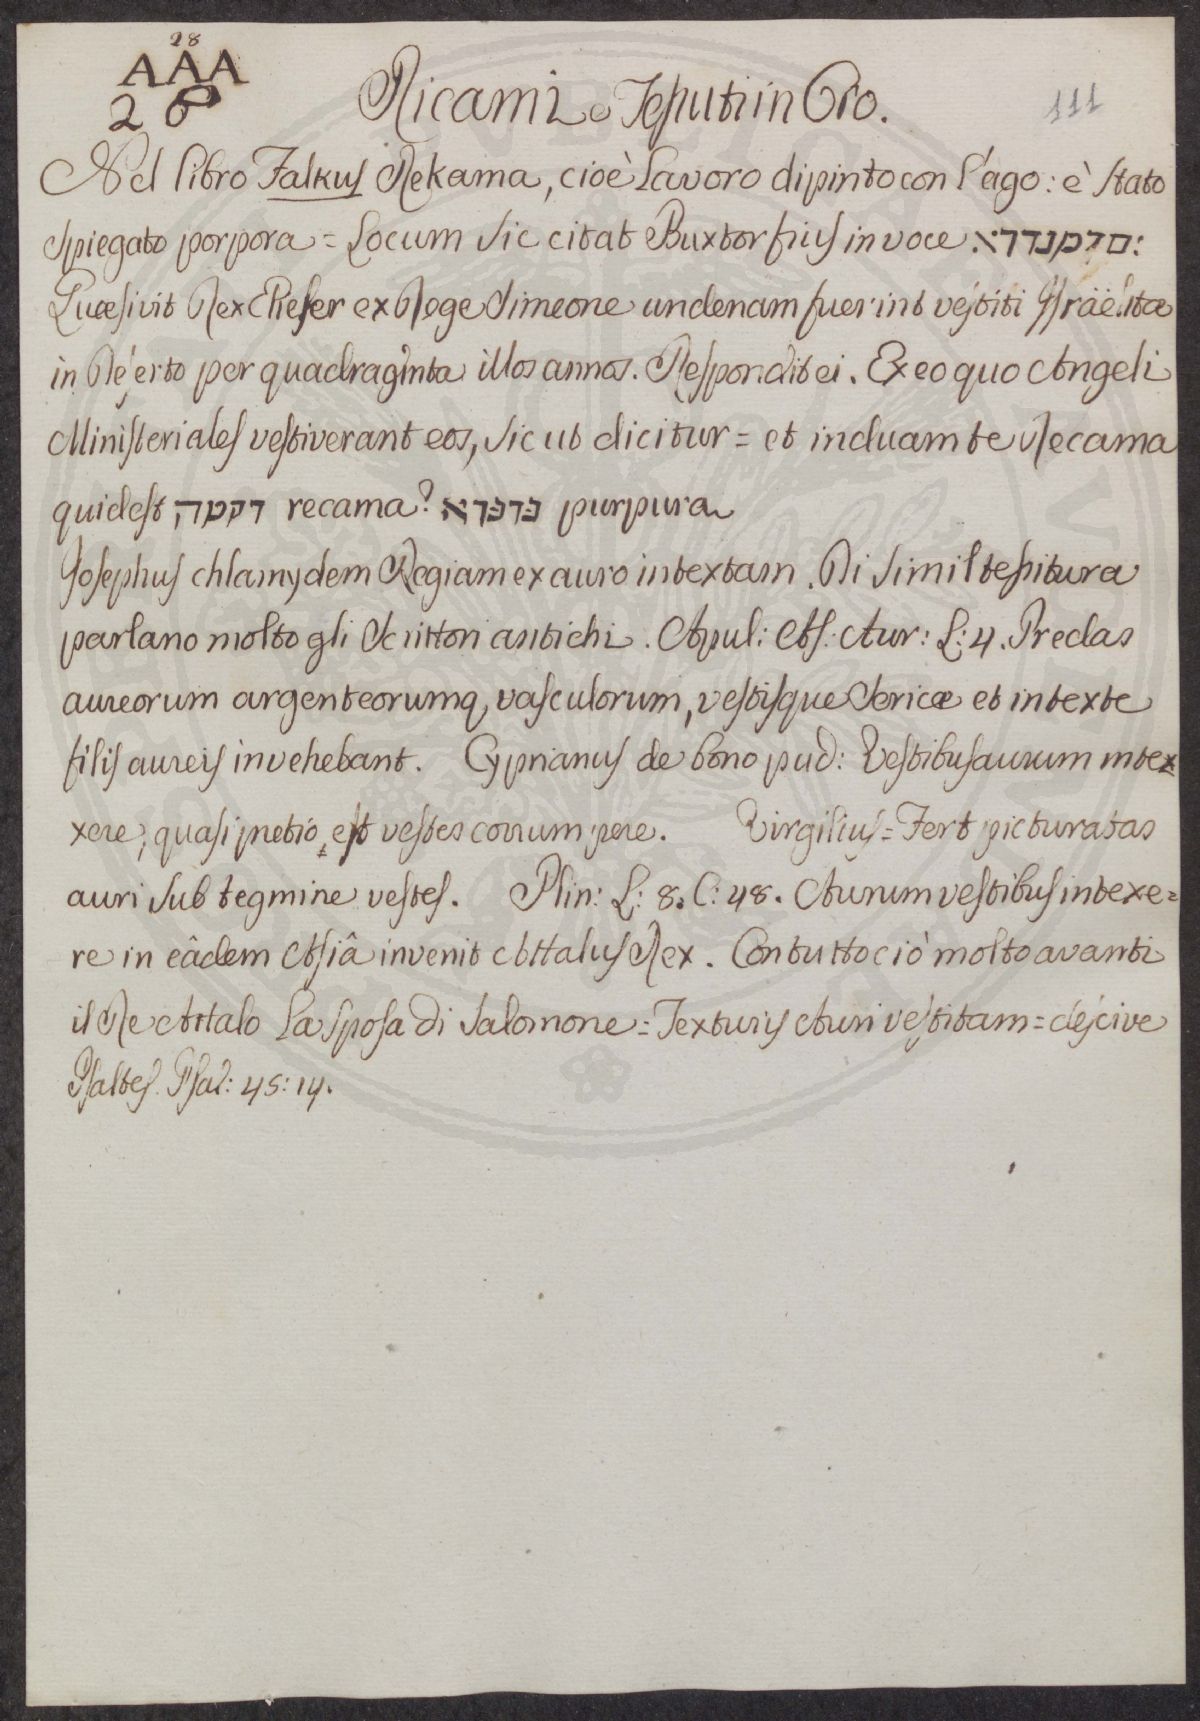 28
AAA
2
111
Ricami e Tessuti in Oro.
Nel libro Jalkus Rekama, cioè Lavoro dipinto con l'ago: è stato
spiegato porpora = Locum sic citat Buxtorfius in voce
Quæsivit Rex Elieser ex Rege Simeone undenam fuerint vestiti Israëlitæ
in Deserto per quadraginta illos annos. Respondit ei. Ex eo quo Angeli
Ministeriales vestiverant eos, sicut dicitur = et induam te Recama
quid est רקמה recama? purpura
Josephus chlamydem Regiam ex auro intextam. Di simil tessitura
parlano molto gli Scrittori antichi. Apul: As: Aur: L: 4. Preclas
aureorum argenteorumq, vasculorum, vestisque Sericæ et intexte
filis aureis invehebant. Cyprianus de bono pud: Vestibus aurum intex=
xere, quasi pretio, est vestes corrumpere. Virgilius = Fert picturatas
auri subtegmine vestes. Plin: L: 8. C: 48. Aurum vestibus intexe=
re in eâdem Asiâ invenit Attalus Rex. Con tutto ciò molto avanti
il Re Attalo La Sposa di Salomone = Texturis Auri vestitam = descive
Psaltes. Psal: 45: 14.